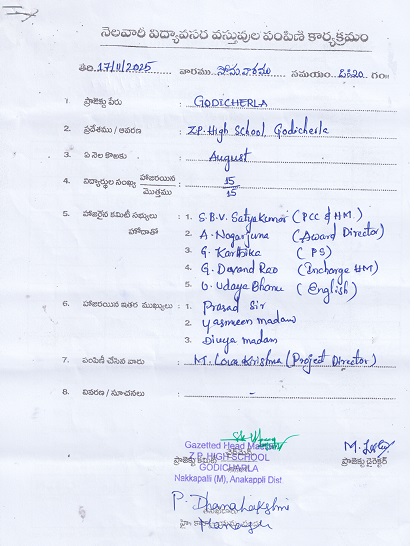 నెలవారి విద్యావసర వస్తువుల పంపిణి కార్యక్రమం
తేది. 17/11/2025 వారము. సోమవారము సమయం. గం॥
1. ప్రాజెక్టు పేరు : GODICHERLA
2. ప్రదేశము / ఆవరణ : Z.P. High School, Godicherla
3. ఏ నెల కొఱకు : August
4. విద్యార్థుల సంఖ్య హాజరయిన : 15
మొత్తము 15
5. హాజరైన కమిటీ సభ్యులు : 1. S.B.V. Satyakumar (PCC & HM.)
హోదాతో 2. A. Nagarjuna (Award Director)
3. G. Karthika (PS)
4. G. Davand Rao (Incharge HM)
5. U. Udaya Bhanu (English)
6. హాజరయిన ఇతర ముఖ్యులు : 1. Prasad Sir
2. Yasmeen madam
3. Divya madam
7. పంపిణి చేసిన వారు : M. Lova Krishna (Project Director)
8. వివరణ / సూచనలు : -
Gazetted Head Master
Z.P. HIGH SCHOOL
ప్రాజెక్టు కమిటి ప్రాజెక్టు డైరెక్టర్
GODICHERLA
Nakkapalli (M), Anakappli Dist
P. Dhanalakshmi